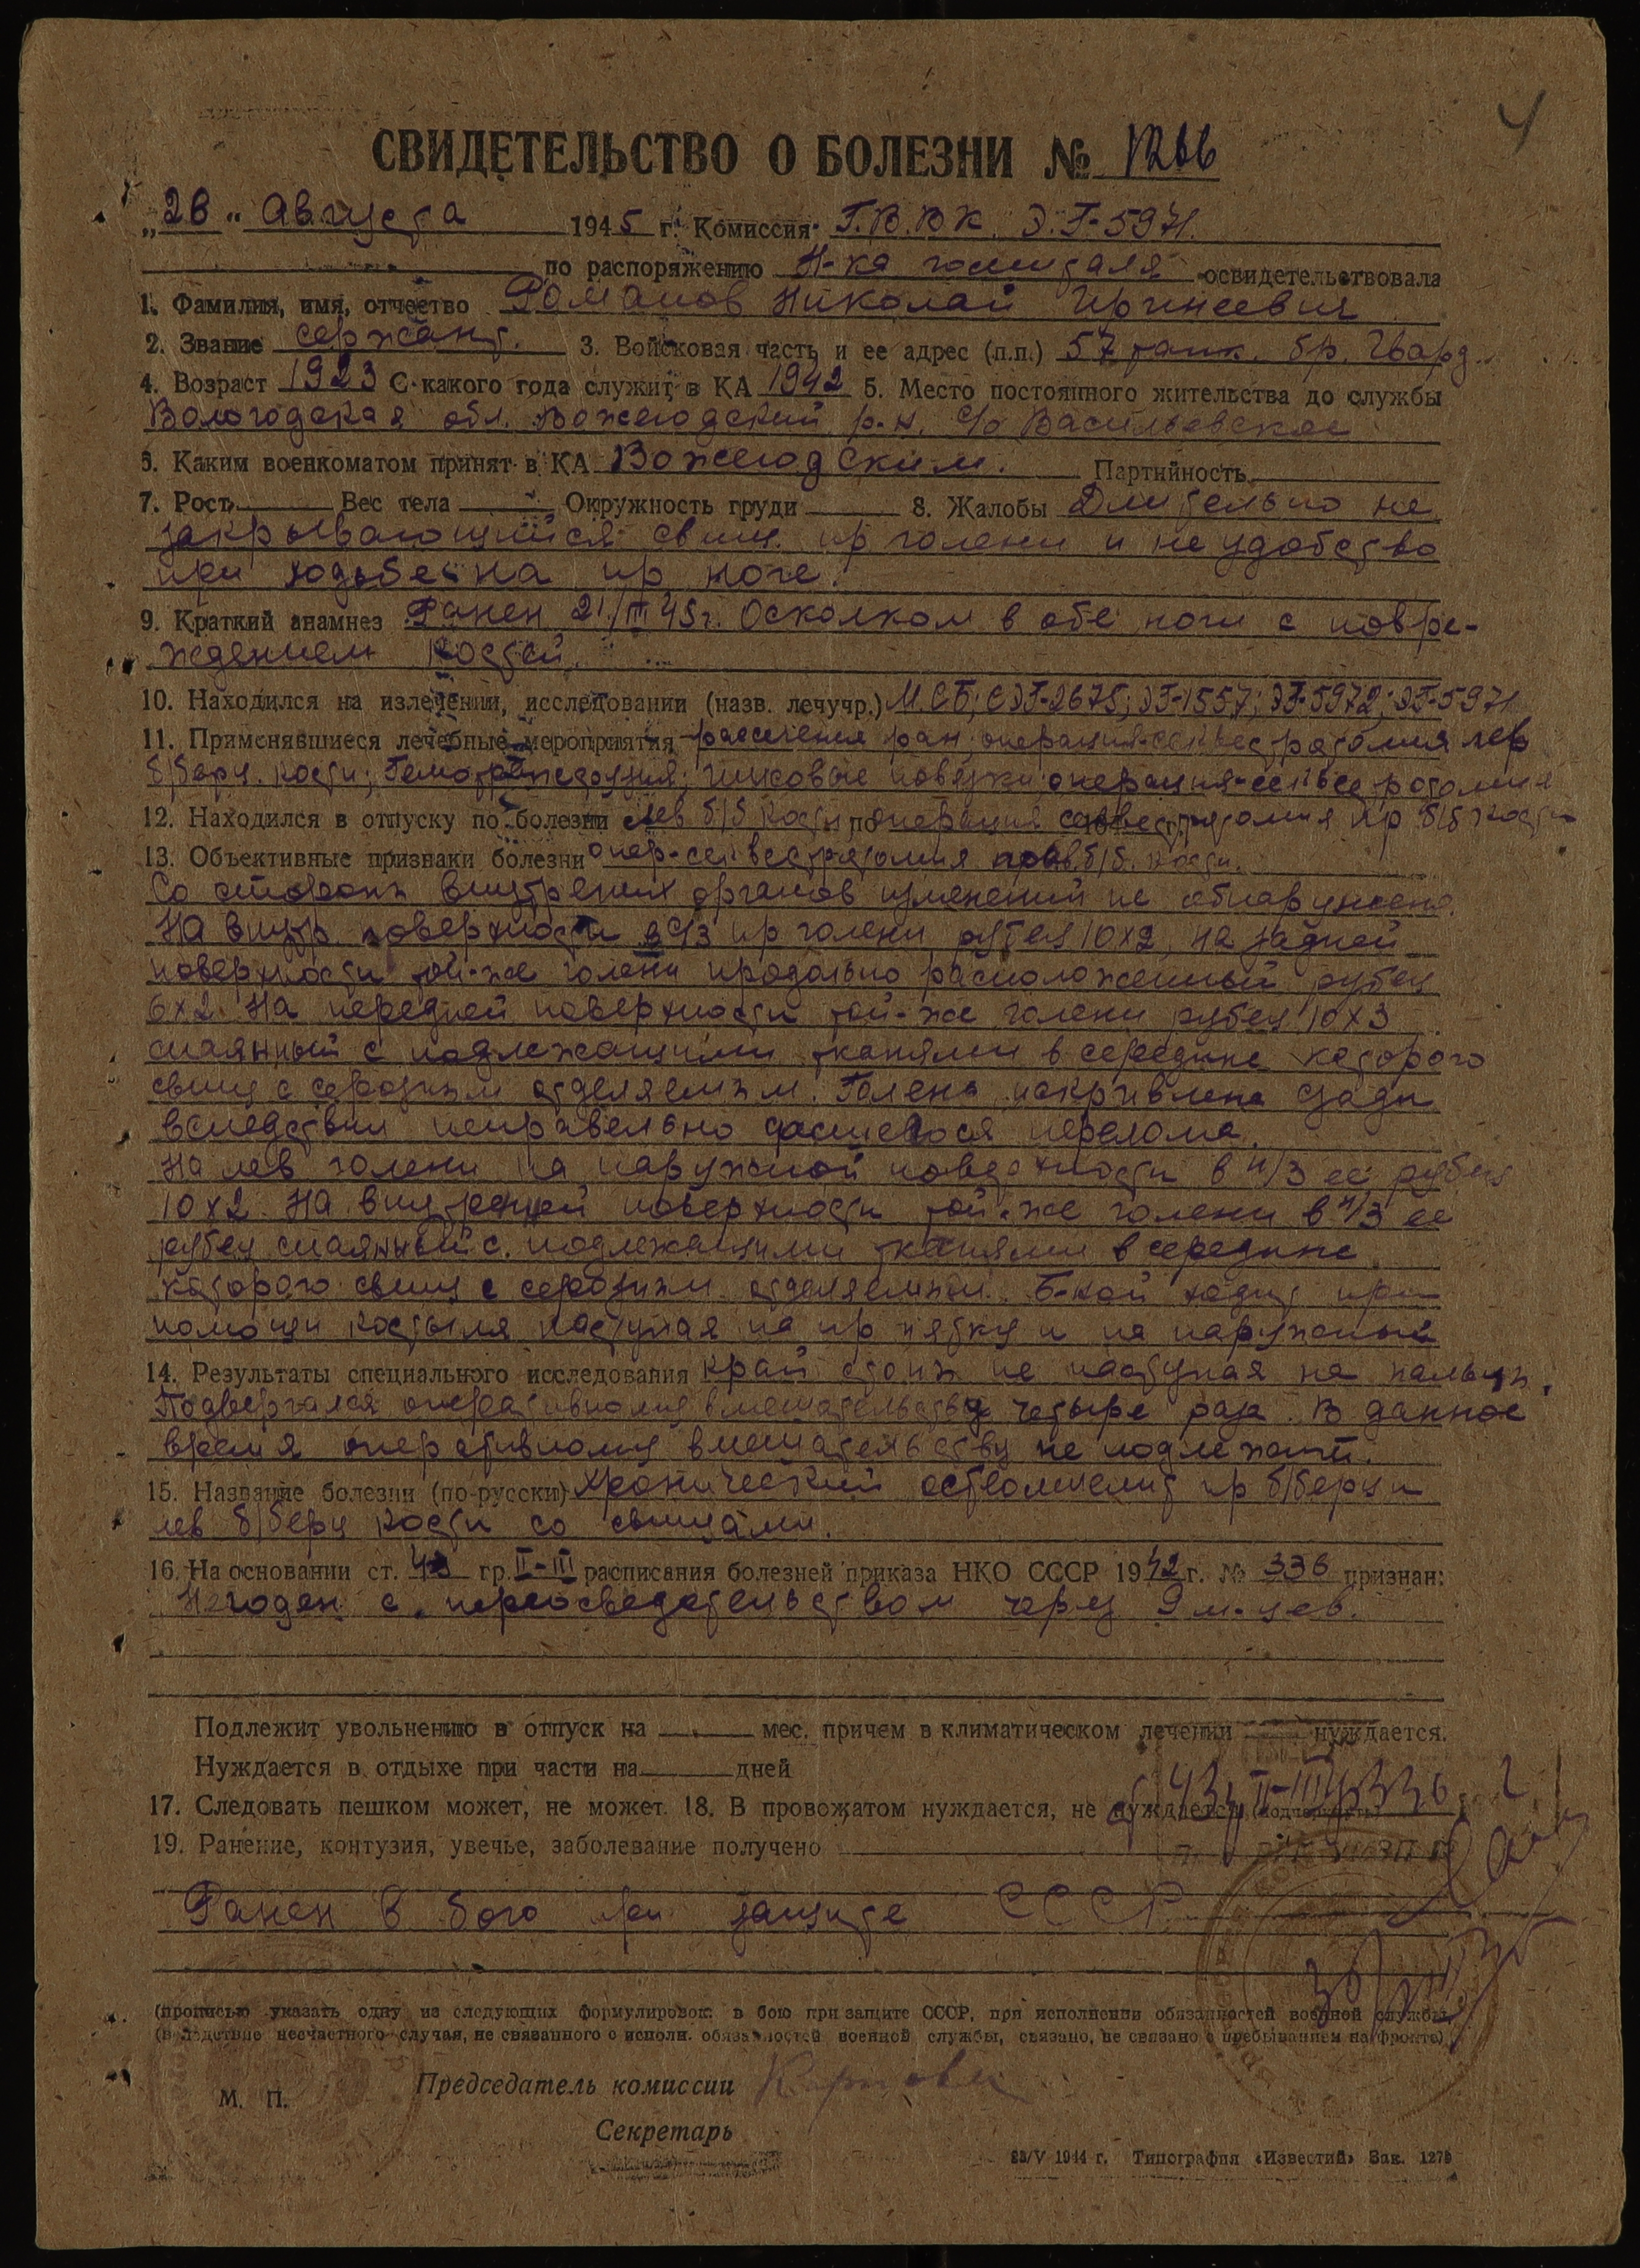 4
СВИДЕТЕЛЬСТВО О БОЛЕЗНИ № 1266
„28" Августа 1945 г. Комиссия Г.В.В.К. Э.Г-5971
по распоряжению Н-ка госпиталя освидетельствовала
1. Фамилия, имя, отчество Романов Николай Иринеевич
2. Звание сержант. 3. Войсковая часть и ее адрес (п.п.) 57 танк. бр. Гвард.
4. Возраст 1923 С какого года служит в КА 1942 5. Место постоянного жительства до службы
Вологодская обл. Вожегодский р-н. с/с Васильевское
6. Каким военкоматом принят в КА Вожегодским. Партийность
7. Рост Вес тела Окружность груди 8. Жалобы Длительно не
закрывающийся свищ пр голени и неудобство
при ходьбе на пр ноге.
9. Краткий анамнез Ранен 21/III 45г. Осколком в обе ноги с повре-
ждением костей.
10. Находился на излечении, исследовании (назв. лечучр.) М.СБ; СЭГ-2675; ЭГ-1557; ЭГ-5972; ЭГ-5971
11. Применявшиеся лечебные мероприятия рассечения ран операция-секвестротомия лев
б/берц. кости; Гемотрансфузия; гипсовые повязки операция-секвестротомия
12. Находился в отпуску по болезни лев б/б кости по операция секвестротомия пр б/б кости
13. Объективные признаки болезни опер-секвестротомия прав. б/б. кости.
Со стороны внутренних органов изменений не обнаружено.
На внутр поверхности в с/3 пр голени рубец 10х2, на задней
поверхности той-же голени продольно расположенный рубец
6х2. На передней поверхности той-же голени рубец 10х3
спаянный с подлежащими тканями в середине которого
свищ с серозным отделяемым. Голень искривлена сзади
вследствии неправельно сросшегося перелома.
На лев голени на наружной поверхности в н/3 ее рубец
10х2. На внутренней поверхности той-же голени в н/3 ее
рубец спаянный с подлежащими тканями в середине
которого свищ с серозным отделяемым. Б-ной ходит при
помощи костыля наступая на пр пятку и на наружный
14. Результаты специального исследования край стопы не наступая на пальцы.
Подвергался оперативному вмешательству четыре раза. В данное
время оперативному вмешательству не подлежит.
15. Название болезни (по-русски) Хронический остеомиелит пр б/берц и
лев б/берц кости со свищами.
16. На основании ст. 43 гр. II-III расписания болезней приказа НКО СССР 1942 г. № 336 признан:
Негоден с переосведетельством через 9 м-цев.
Подлежит увольнению в отпуск на мес. причем в климатическом лечении нуждается.
Нуждается в отдыхе при части на дней
17. Следовать пешком может, не может. 18. В провожатом нуждается, не нуждается (подчеркнуть)
ст 43 гр II-III пр 336
19. Ранение, контузия, увечье, заболевание получено
Ранен в бою при защите СССР
(прописью указать одну из следующих формулировок: в бою при защите СССР, при исполнении обязанностей военной службы,
(вследствие несчастного случая, не связанного с исполн. обязанностей военной службы, связано, не связано с пребыванием на фронте)
Председатель комиссии
М. П.
Секретарь
23/V 1944 г. Типография «Известий» Зак. 1279